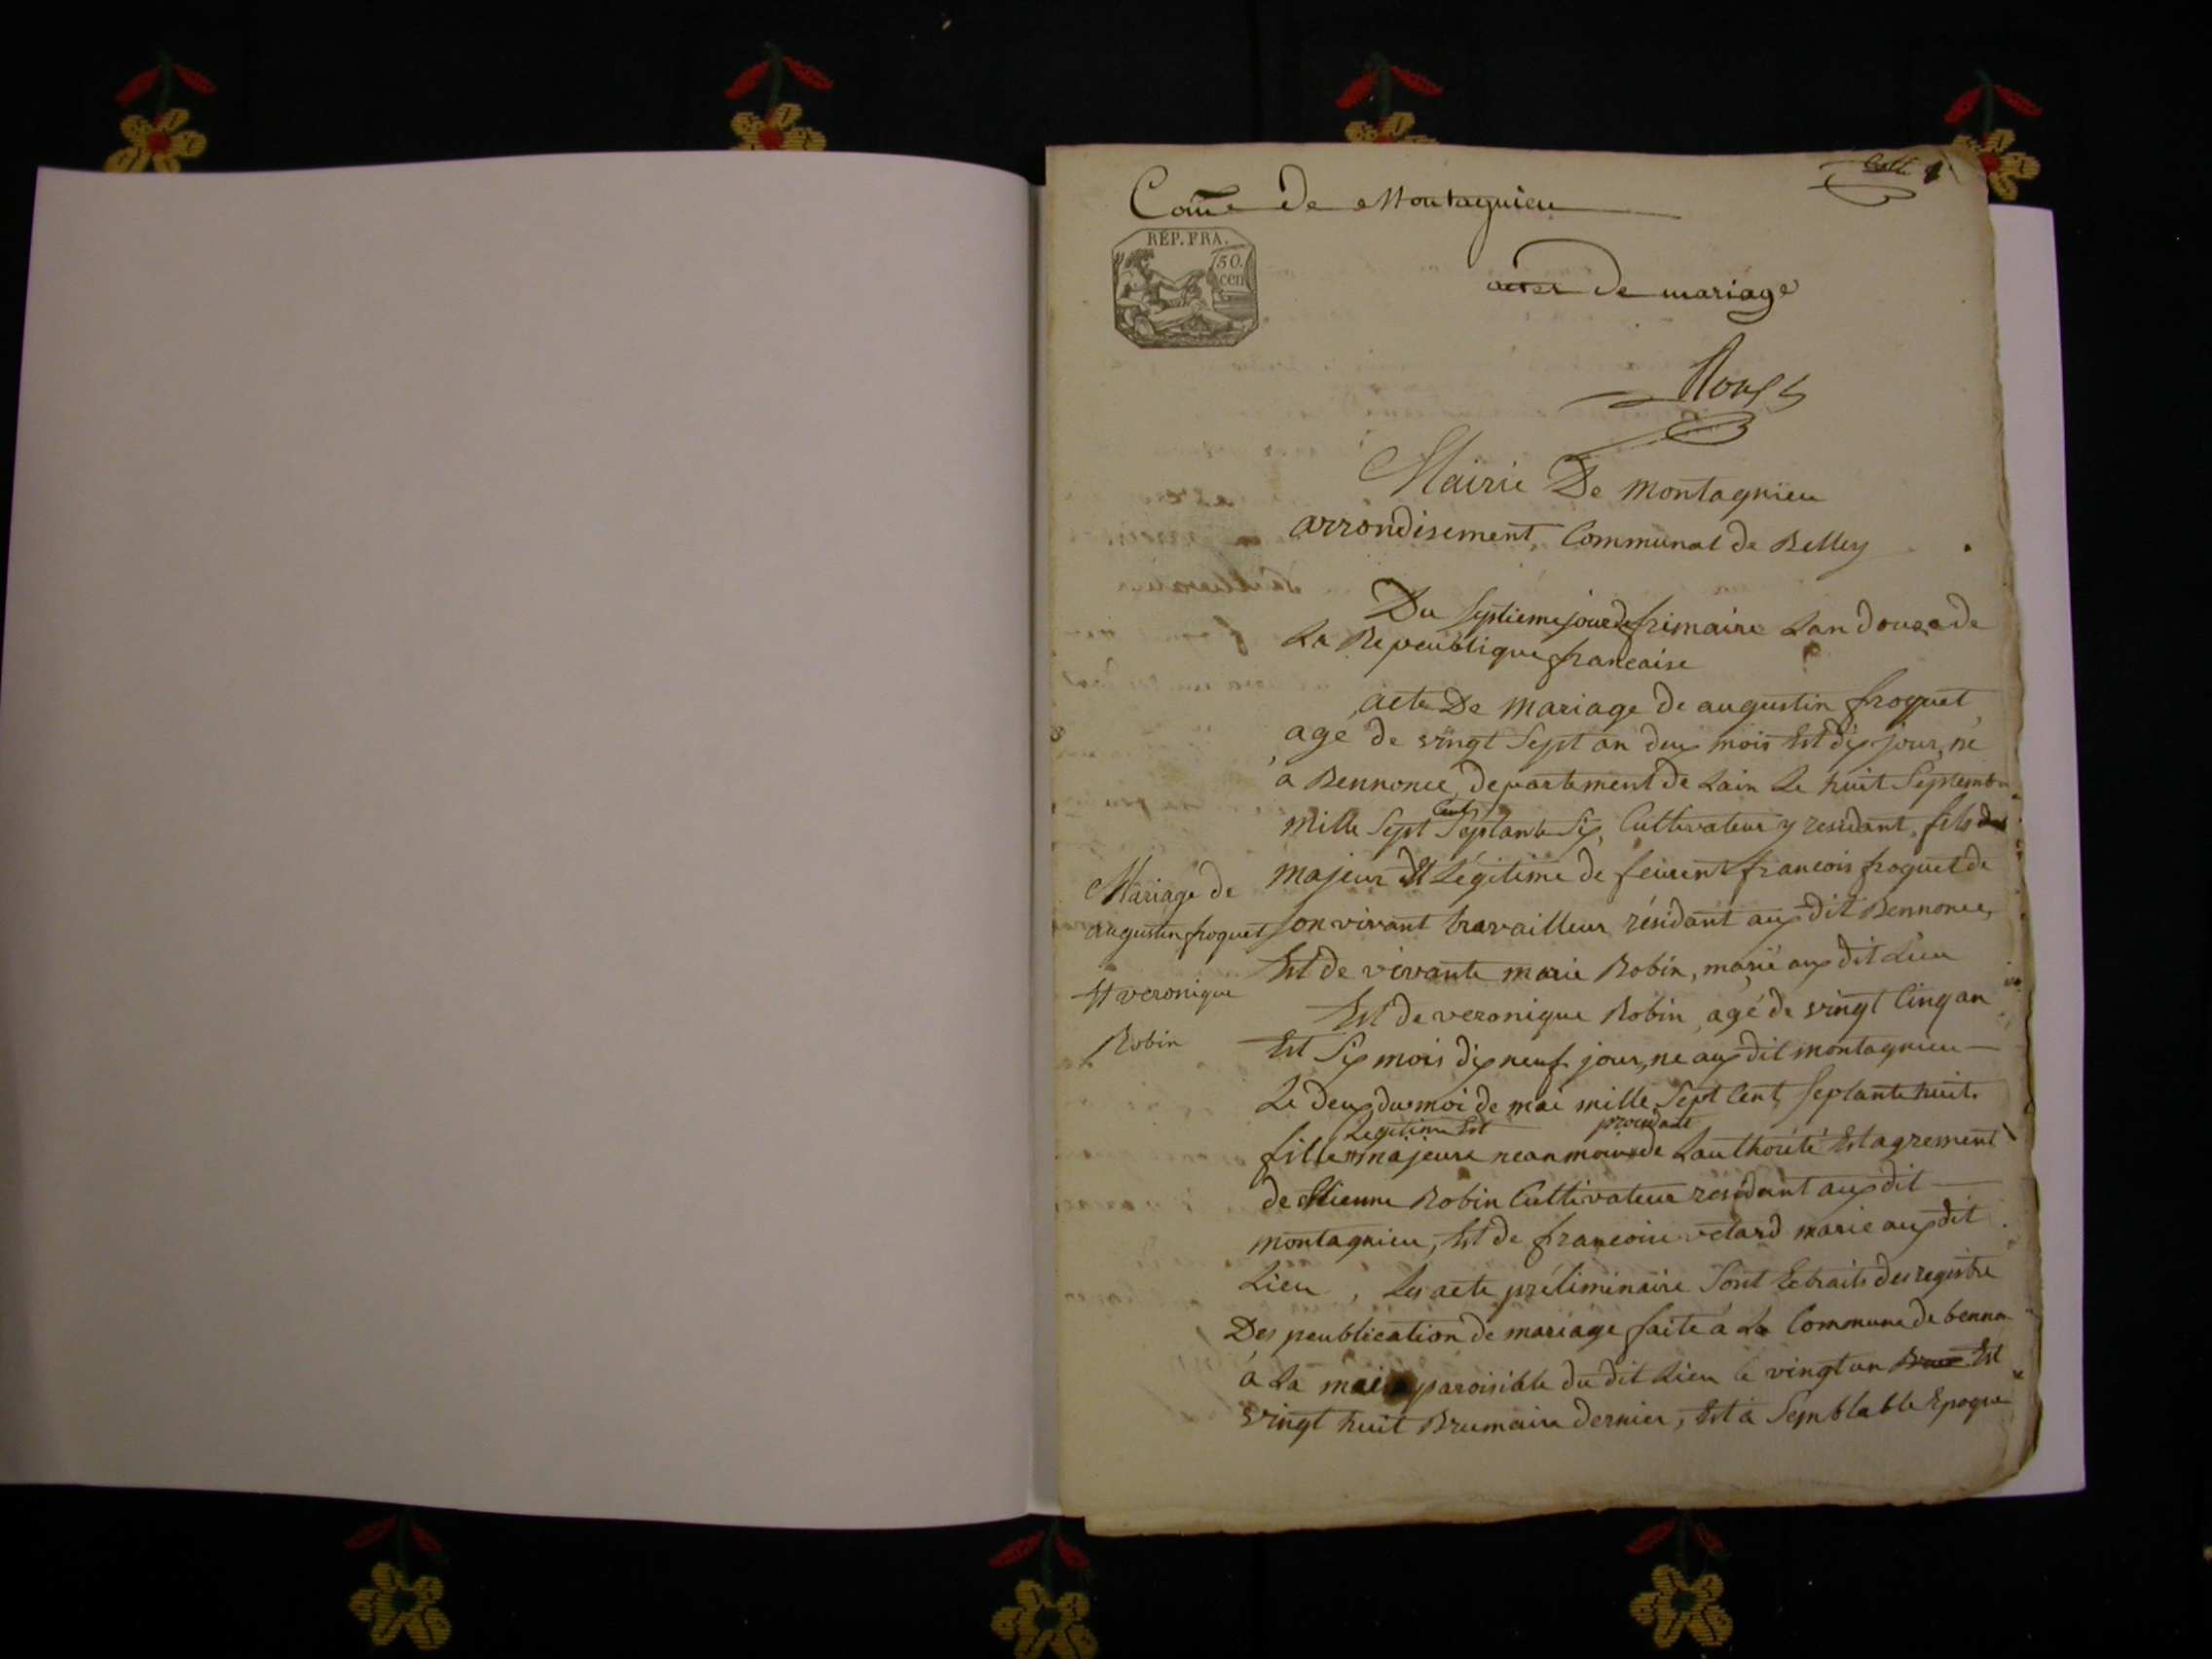 Com̄e De Montagnieu
RÉP. FRA.
50.
cen
actes De mariage
Mairie De montagnieu
arrondisement, Communal de Belley
Du septieme jour de frimaire Lan douze de
La Repeublique francaise
acte De mariage de augustin froquet
agé de vingt Sept an deux mois Est dix jour, né
a Bennonce, departement de Lain Le huit Septembre
mille Sept Cent Septante Six, Cultivateur y residant, fils
majeur Et Légitime de francois froquet de
Mariage de
augustin froquet
Et veronique
Robin
son vivant travailleur résidant aux dit Bennonce,
Est de vivante marie Robin, marié aux dit Lieu
Est de veronique Robin, agé de vingt Cinq an
Est Six mois dix neuf jour, ne aux dit montagnieu
Le deux du moi de mai mille Sept Cent Septante huit.
fille Legitime Est majeure neanmoins procedante de Lauthorité Est agrement
de Etienne Robin Cultivateur residant aux dit
montagnieu, Est de francoise velard marié aux dit
Lieu, Les acte préliminaire Sont Extraits des registre
Des peublication de mariage faite à La Commune de benno
à La paroisible du dit Lieu le vingt un Est
vingt huit Brumaire dernier, Est à Semblable Epoque